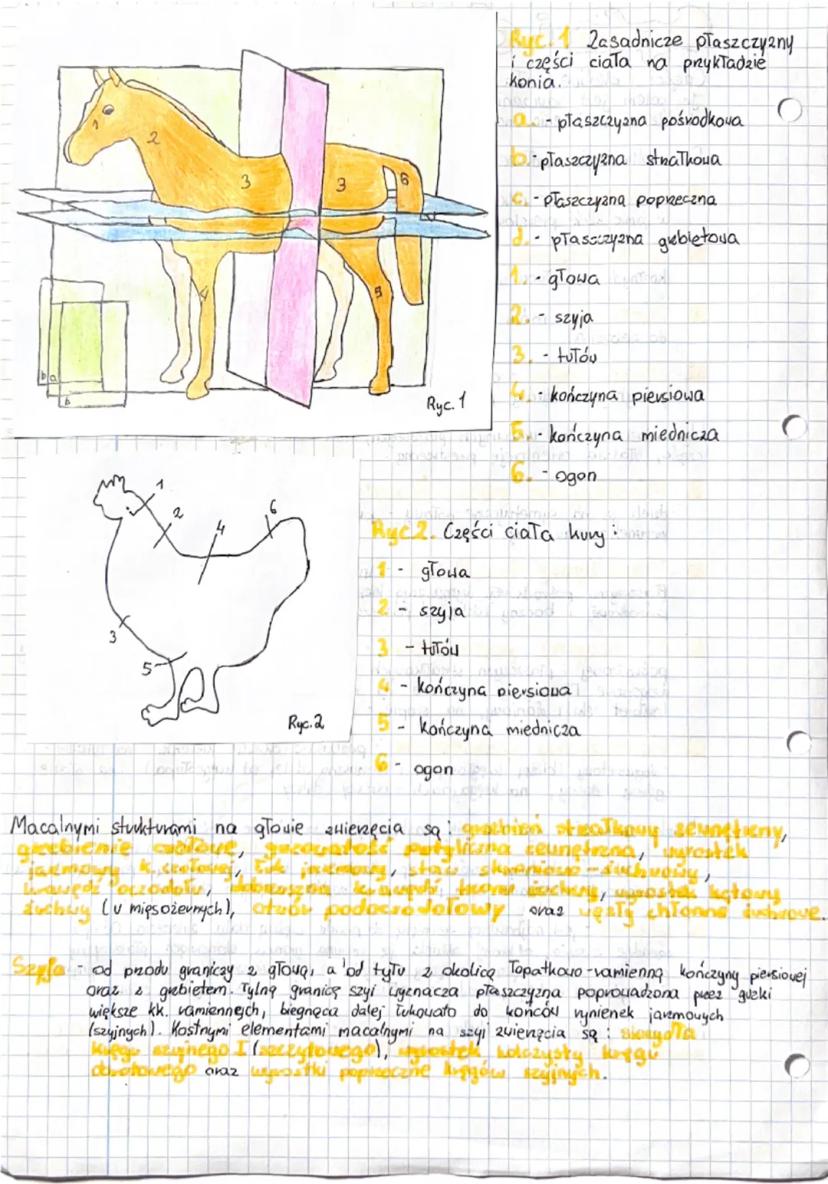 Ryc. 1 Zasadnicze płaszczyzny
i części ciała na przykładzie
konia.
a. - płaszczyzna pośrodkowa
b. - płaszczyzna strzałkowa
c. - płaszczyzna poprzeczna
d. - płaszczyzna grzbietowa
1. - głowa
2. - szyja
3. - tułów
4. - kończyna piersiowa
5. - kończyna miednicza
6. - ogon
1
2
3
3
6
4
5
b
a
b
Ryc. 1
1
2
4
6
3
5
Ryc. 2
Ryc 2. Części ciała kury :
1 - głowa
2 - szyja
3 - tułów
4 - kończyna piersiowa
5 - kończyna miednicza
6 - ogon
Macalnymi strukturami na głowie zwierzęcia są : grzebień strzałkowy zewnętrzny,
grzebienie czołowe, guzowatość potyliczna zewnętrzna, wyrostek
jarzmowy k. czołowej, łuk jarzmowy, staw skroniowo-żuchwowy,
krawędź oczodołu, dobrzuszna krawędź trzonu żuchwy, wyrostek kątowy
żuchwy (u mięsożernych), otwór podoczodołowy oraz węzły chłonne żuchwowe.
Szyja - od przodu graniczy z głową, a od tyłu z okolicą łopatkowo-ramienną kończyny piersiowej
oraz z grzbietem. Tylną granicę szyi wyznacza płaszczyzna poprowadzona przez guzki
większe kk. ramiennych, biegnąca dalej łukowato do końców rynienek jarzmowych
(szyjnych). Kostnymi elementami macalnymi na szyi zwierzęcia są : skrzydła
kręgu szyjnego I (szczytowego), wyrostek kolczysty kręgu
obrotowego oraz wyrostki poprzeczne kręgów szyjnych.